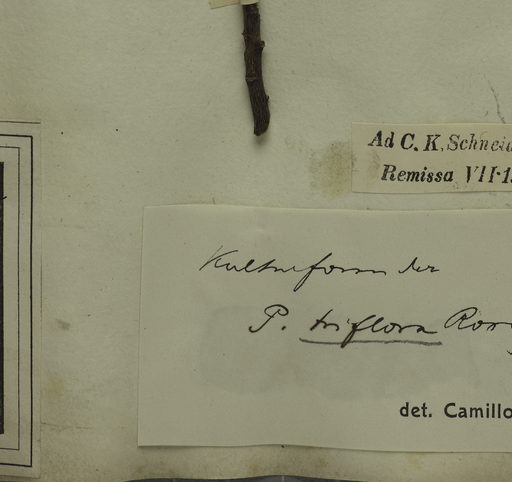 Ad C. K. Schneid
Remissa VII·1
Kulturform der
P. triflora Rox
det. Camillo